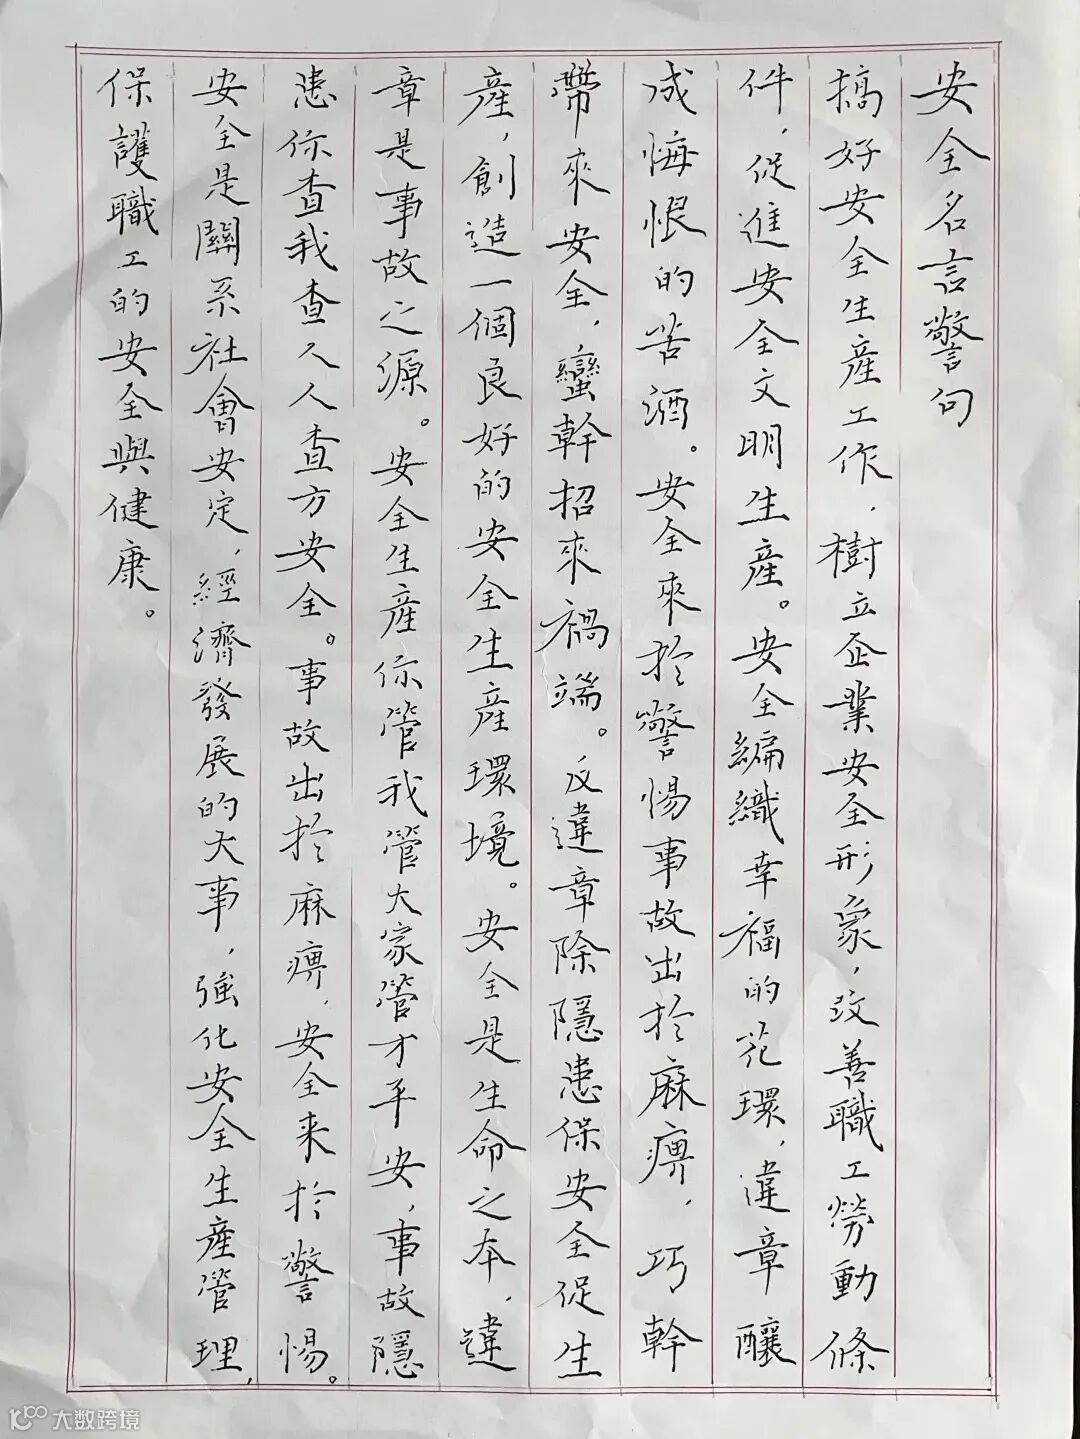 安全名言警句
搞好安全生產工作，樹立企業安全形象，改善職工勞動條
件，促進安全文明生產。安全編織幸福的花環，違章釀
成悔恨的苦酒。安全來於警惕事故出於麻痹，巧幹
帶來安全，蠻幹招來禍端。反違章除隱患保安全促生
產，創造一個良好的安全生產環境。安全是生命之本，違
章是事故之源。安全生產你管我管大家管才平安，事故隱
患你查我查人人查方安全。事故出於麻痹，安全来於警惕。
安全是關系社會安定，經濟發展的大事，強化安全生產管理，
保護職工的安全與健康。
大数跨境